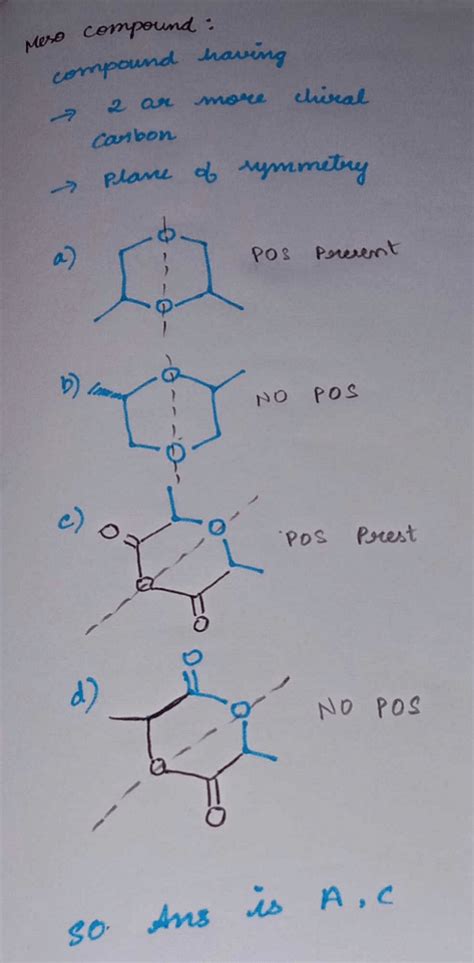 Meso compound:
compound having
→ 2 or more chiral
carbon
→ Plane of symmetry
a) O O POS Present
b) O O NO POS
c) O O O O POS Prest
d) O O O O NO POS
SO. Ans is A, C